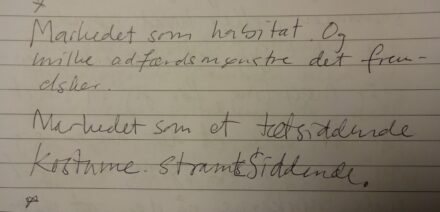 Markedet som habitat. Og
hvilke adfærdsmønstre det frem-
elsker.
Markedet som et tætsiddende
kostume. stramtsiddende.